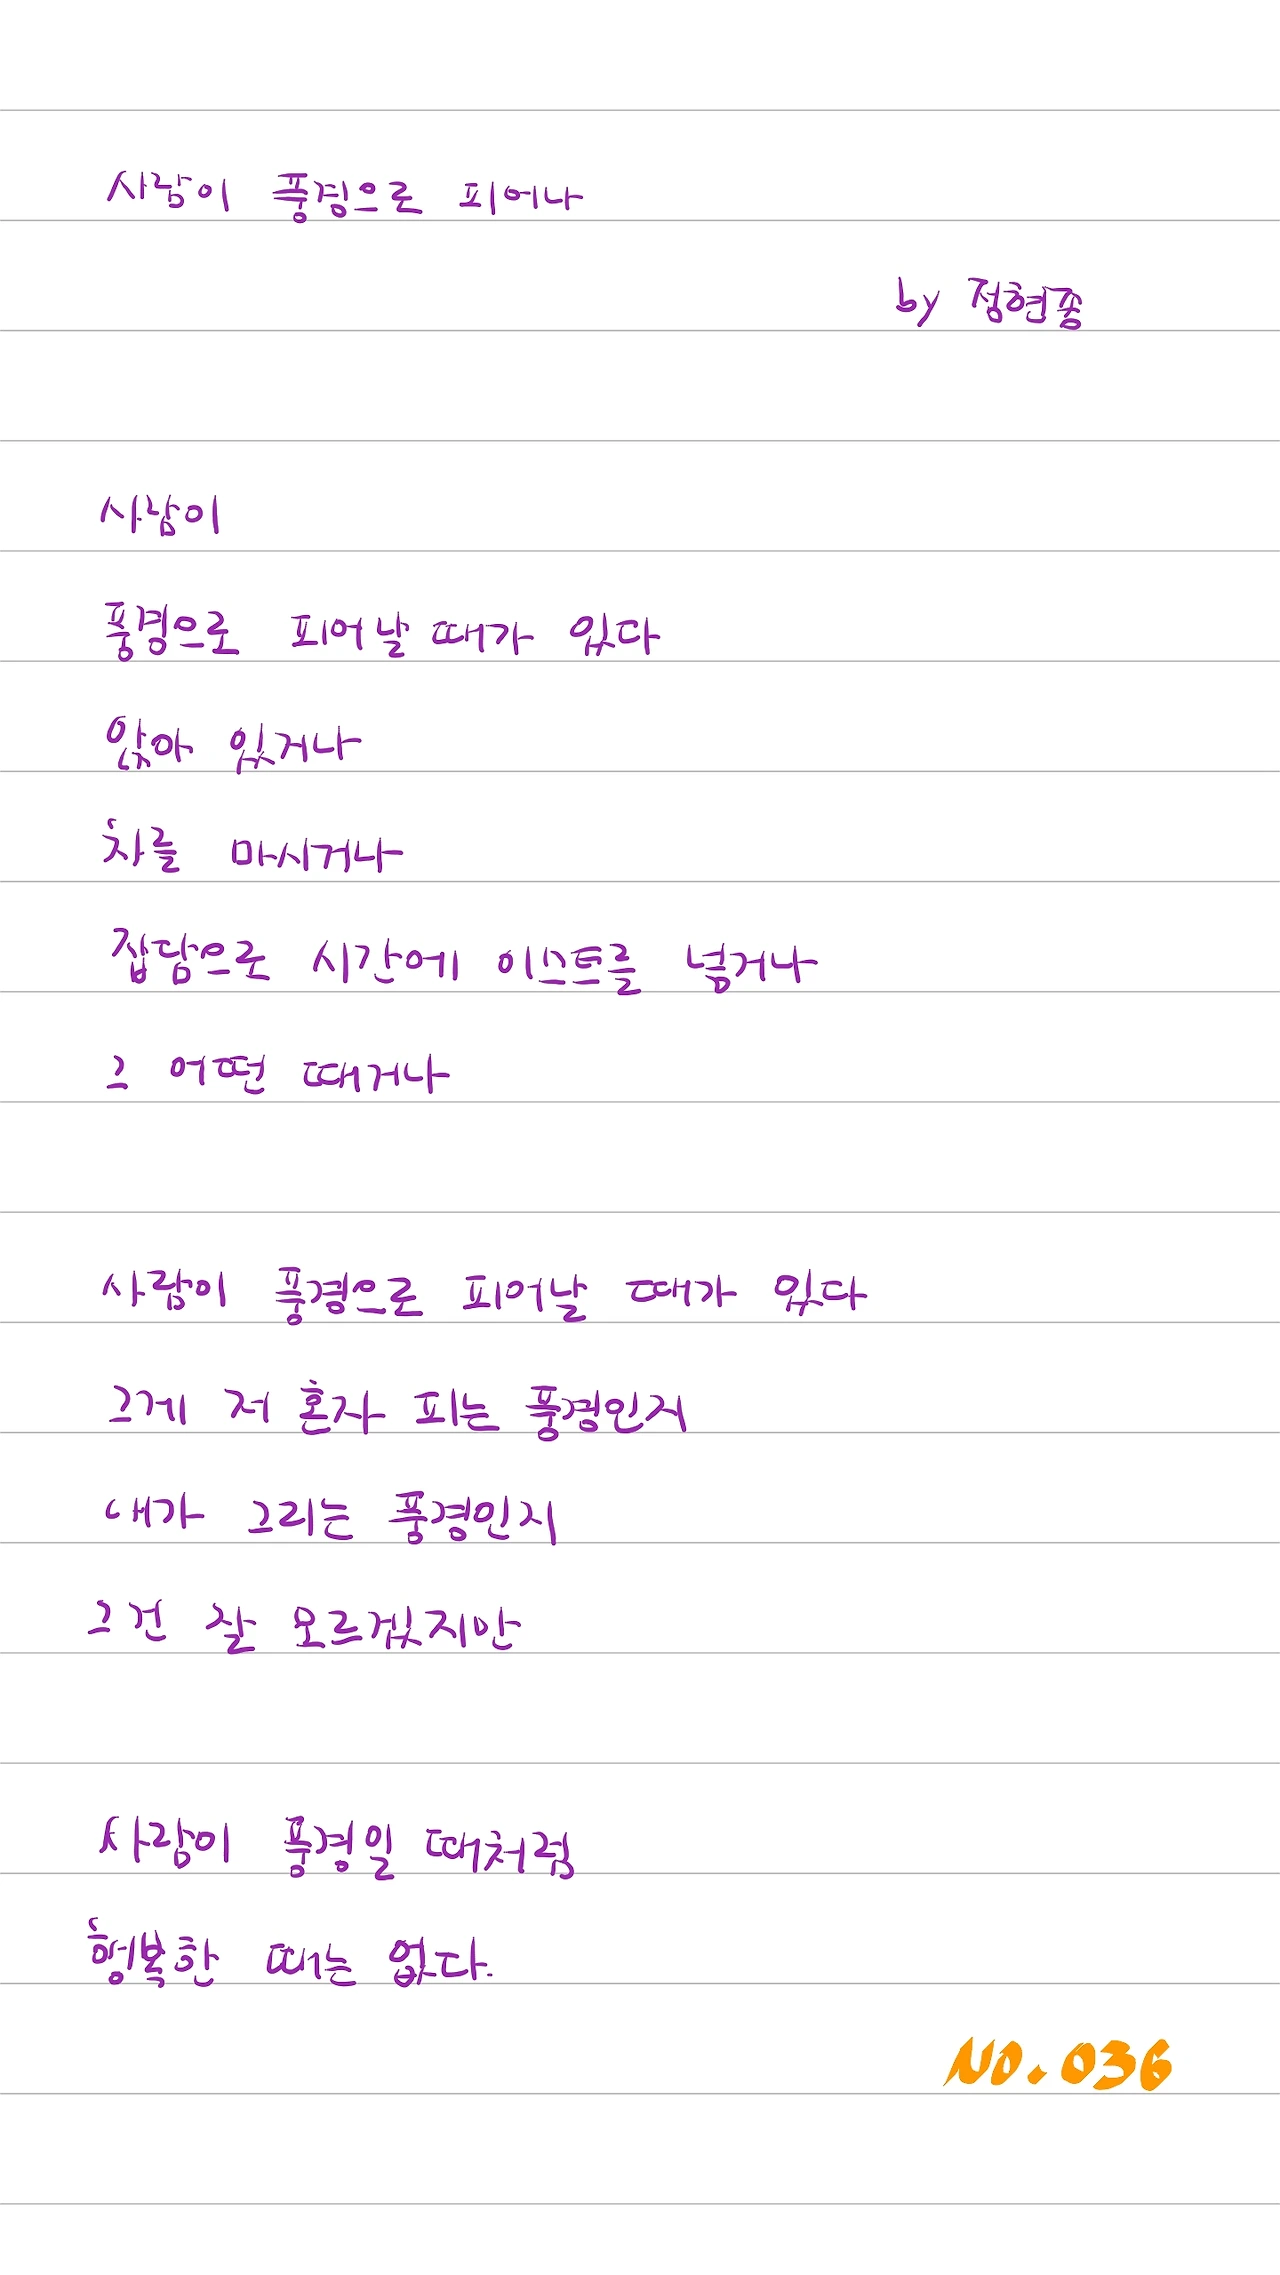 사람이 풍경으로 피어나
by 정현종
사람이
풍경으로 피어날 때가 있다
앉아 있거나
차를 마시거나
잡담으로 시간에 이스트를 넣거나
그 어떤 때거나
사람이 풍경으로 피어날 때가 있다
그게 저 혼자 피는 풍경인지
내가 그리는 풍경인지
그건 잘 모르겠지만
사람이 풍경일 때처럼
행복한 때는 없다.
NO. 036